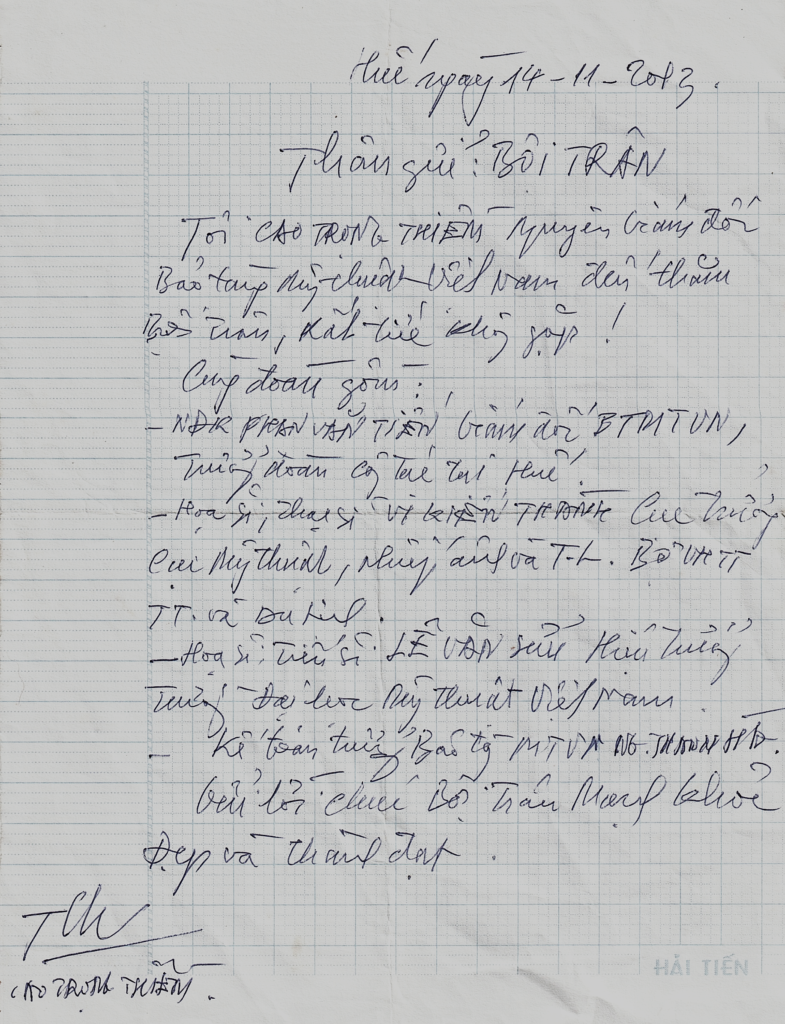 Huế ngày 14-11-2013.
Thân gửi: BỘI TRÂN
Tôi CAO TRỌNG THIỀM Nguyên Giám đốc
Bảo tàng Mỹ thuật Việt Nam đến thăm
Bội Trân, Rất tiếc không gặp!
Cùng đoàn gồm:
- NĐK PHAN VĂN TIẾN Giám đốc BTMTVN,
Trưởng đoàn công tác tại Huế.
- Họa sĩ, thạc sĩ VI KIẾN THÀNH Cục trưởng
Cục Mỹ thuật, Nhiếp ảnh và T-L. Bộ VH TT
TT. và Du lịch.
- Họa sĩ: Tiến sĩ. LÊ VĂN SỬU Hiệu trưởng
Trường Đại học Mỹ thuật Việt Nam.
- Kế toán trưởng Bảo tg MTVN NG. THANH HÀ.
Gửi lời chúc Bội Trân Mạnh khỏe
Đẹp và thành đạt.
CAO TRỌNG THIỀM.
HẢI TIẾN